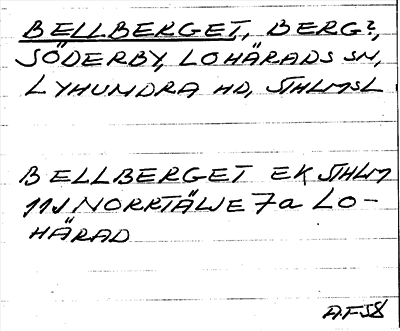 BELLBERGET, BERG?,
SÖDERBY, LOHÄRADS SN,
LYHUNDRA HD, STHLMSL
BELLBERGET EK STHLM
11J NORRTÄLJE 7a LO-
HÄRAD
A.F.58